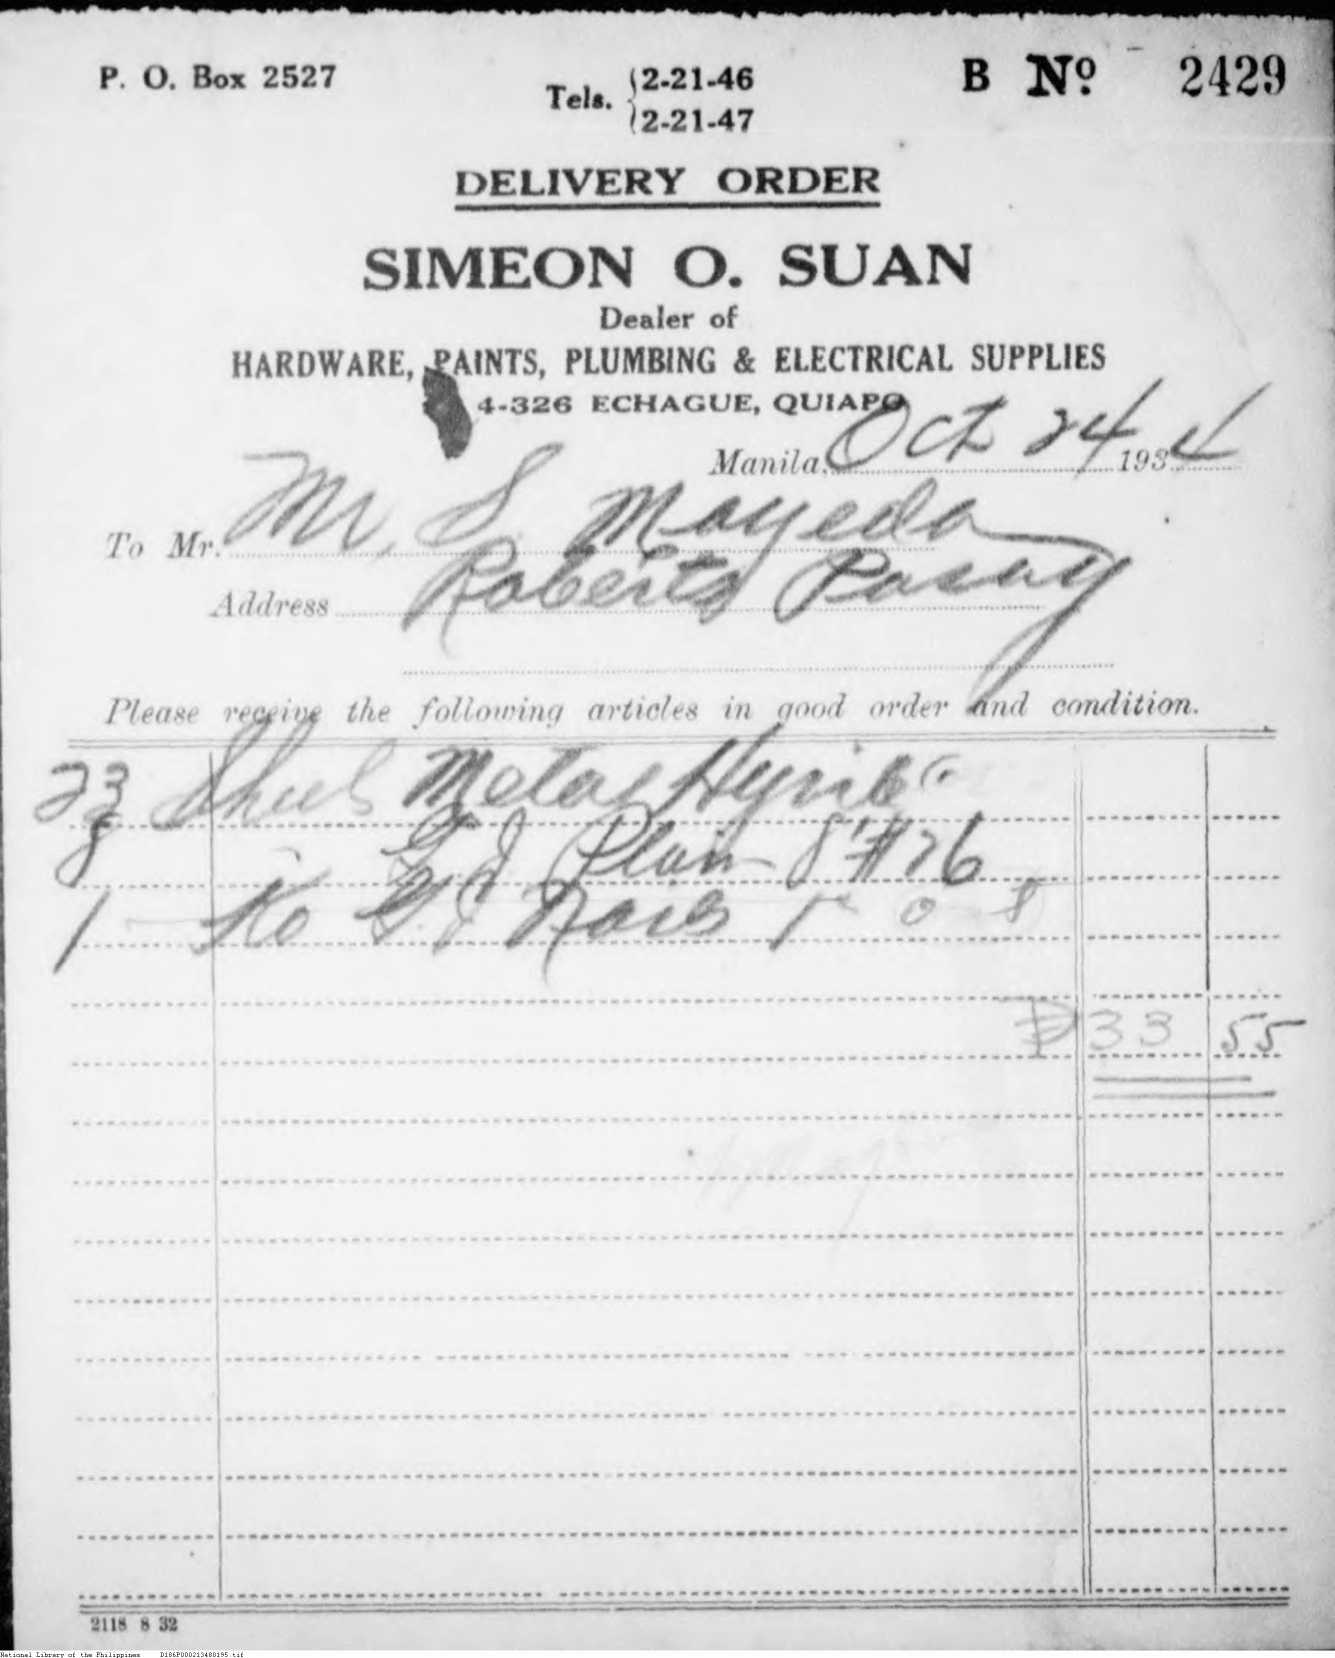 P. O. Box 2527
Tels. 2-21-46
2-21-47
B No. 2429
DELIVERY ORDER
SIMEON O. SUAN
Dealer of
HARDWARE, PAINTS, PLUMBING & ELECTRICAL SUPPLIES
4-326 ECHAGUE, QUIAPO
Manila, Oct 24 1934
To Mr. Mr. S. Mayeda
Address Roberts Pasay
Please receive the following articles in good order and condition.
23 Sheets Metal
8 G I Plain 8' #26
1 Ko G I Nails
₱ 33 55
2118 8 32
National Library of the Philippines D186P000213480195.tif